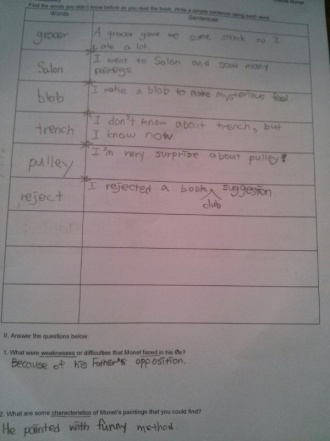 Find the words you didn't know before as you read the book. Write a simple sentence using each word.
Words
Sentences
grocer
A grocer gave me some snack so I
ate a lot.
Salon
I went to Salon and saw many
paintings
blob
I make a blob to make mysterious
trench
I don't know about trench, but
I know now
pulley
I'm very surprise about pulley!
reject
I rejected a book suggestion
club
II. Answer the questions below.
1. What were weaknesses or difficulties that Monet faced in his life?
Because of his father's opposition.
2. What are some characteristics of Monet's paintings that you could find?
He painted with funny method.